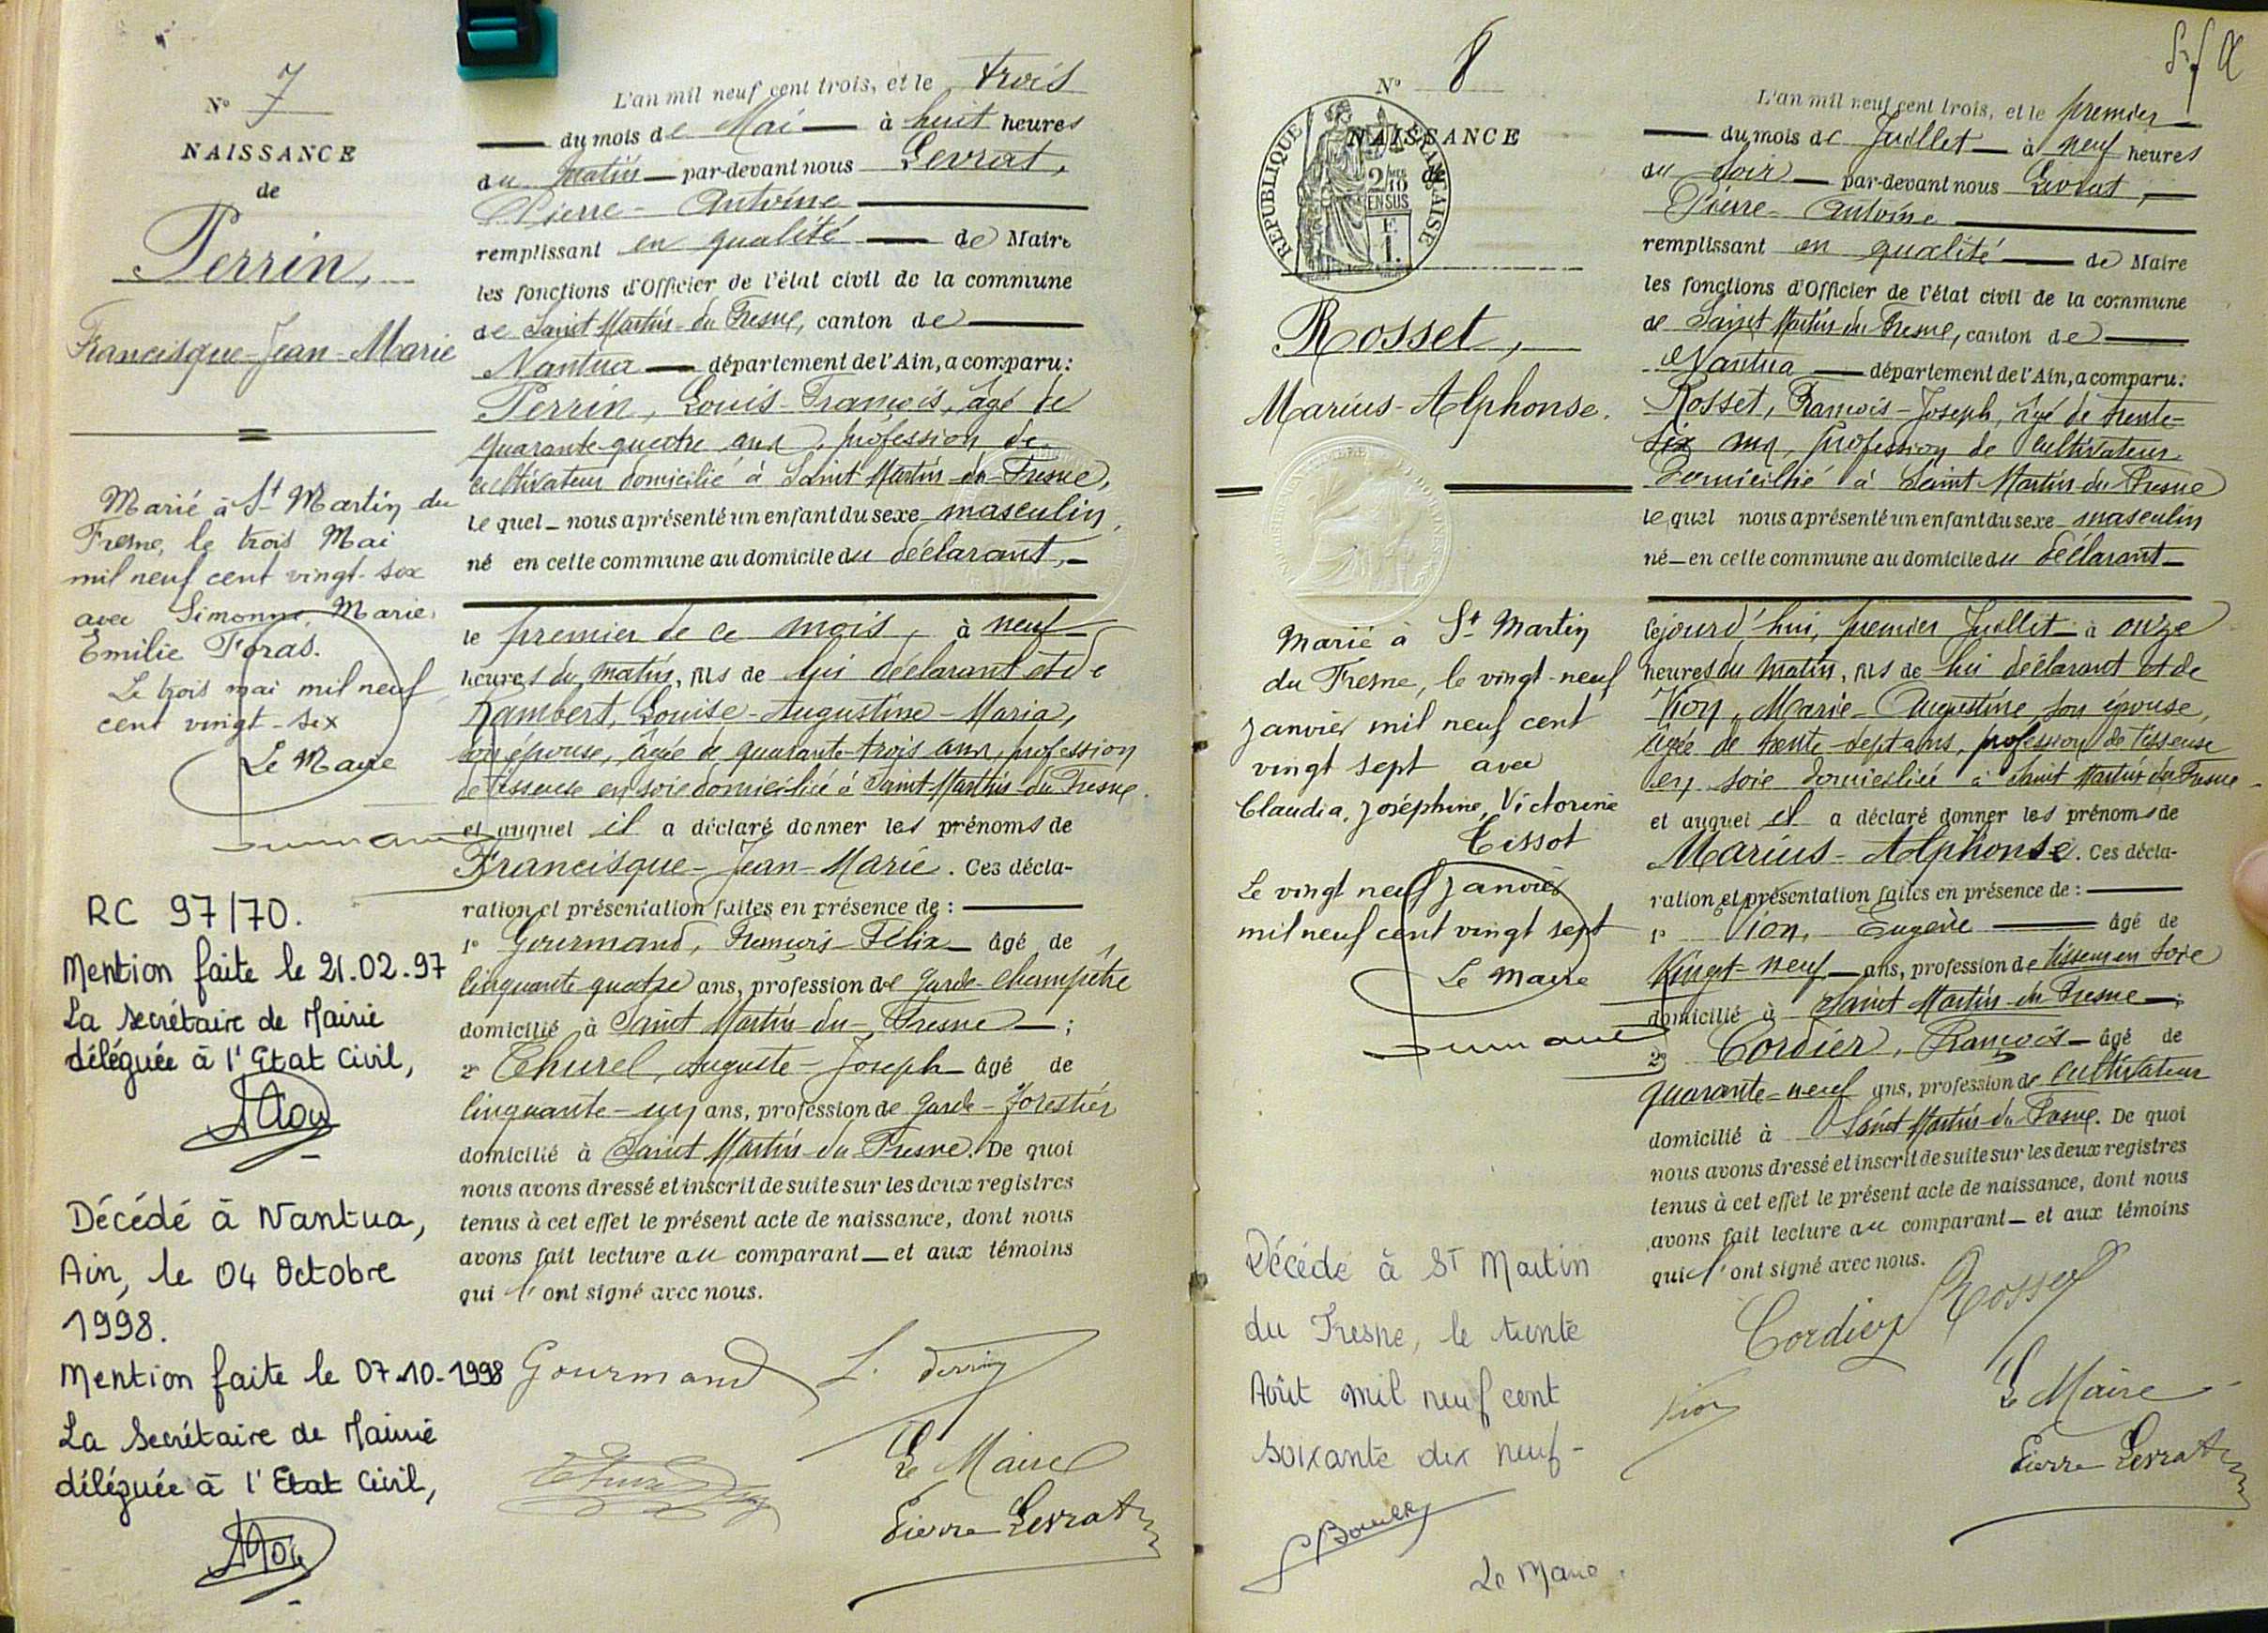 N° 7
NAISSANCE
de
Perrin,
Francisque-Jean-Marie
Marié à St Martin du
Fresne, le trois Mai
mil neuf cent vingt-six
avec Simonne, Marie,
Emilie Foras.
Le trois mai mil neuf
cent vingt-six
Le Maire
RC 97/70.
Mention faite le 21.02.97
La secrétaire de Mairie
déléguée à l'Etat Civil,
Décédé à Nantua,
Ain, le 04 Octobre
1998.
Mention faite le 07-10-1998
La Secrétaire de Mairie
déléguée à l'Etat Civil,
L'an mil neuf cent trois, et le trois
du mois de Mai à huit heures
du matin par-devant nous Levrat,
Pierre-Antoine
remplissant en qualité de Maire
les fonctions d'Officier de l'état civil de la commune
de Saint Martin-du Fresne, canton de
Nantua département de l'Ain, a comparu:
Perrin, Louis-François, âgé de
quarante-quatre ans, profession de
cultivateur domicilié à Saint Martin-du-Fresne,
lequel nous a présenté un enfant du sexe masculin,
né en cette commune au domicile du déclarant,
le premier de ce mois, à neuf
heures du matin, fils de lui déclarant et de
Rambert, Louise-Augustine-Maria,
son épouse, âgée de quarante-trois ans, profession
de tisseuse en soie domiciliée à Saint-Martin-du Fresne.
et auquel il a déclaré donner les prénoms de
Francisque-Jean-Marie. Ces décla-
ration et présentation faites en présence de :
1° Gourmand, François-Félix âgé de
cinquante quatre ans, profession de garde-champêtre
domicilié à Saint Martin-du-Fresne ;
2° Thurel, Auguste-Joseph âgé de
cinquante-un ans, profession de garde-forestier
domicilié à Saint Martin-du-Fresne. De quoi
nous avons dressé et inscrit de suite sur les deux registres
tenus à cet effet le présent acte de naissance, dont nous
avons fait lecture au comparant et aux témoins
qui l'ont signé avec nous.
Gourmand L. Perrin
Le Maire
Pierre Levrat
N° 8
REPUBLIQUE FRANÇAISE
2/10 EN SUS
F. 1.
NAISSANCE
de
Rosset,
Marius-Alphonse.
Marié à St Martin
du Fresne, le vingt-neuf
janvier mil neuf cent
vingt sept avec
Claudia, Joséphine, Victorine
Tissot
Le vingt neuf janvier
mil neuf cent vingt sept
Le Maire
Décédé à ST Martin
du Fresne, le trente
Août mil neuf cent
soixante dix neuf-
Le Maire.
L'an mil neuf cent trois, et le premier
du mois de Juillet à neuf heures
du soir par-devant nous Levrat,
Pierre-Antoine
remplissant en qualité de Maire
les fonctions d'Officier de l'état civil de la commune
de Saint Martin-du Fresne, canton de
Nantua département de l'Ain, a comparu:
Rosset, François-Joseph, âgé de trente-
six ans, profession de cultivateur
domicilié à Saint Martin-du Fresne
lequel nous a présenté un enfant du sexe masculin
né en cette commune au domicile du déclarant
cejourd'hui, premier Juillet à onze
heures du matin, fils de lui déclarant et de
Vion, Marie-Augustine son épouse,
âgée de trente-sept ans, profession de tisseuse
en soie domiciliée à Saint Martin-du Fresne
et auquel il a déclaré donner les prénoms de
Marius-Alphonse. Ces décla-
ration et présentation faites en présence de :
1° Vion, Eugène âgé de
vingt-neuf ans, profession de tisseur en soie
domicilié à Saint Martin-du-Fresne ;
2° Cordier, François âgé de
quarante-neuf ans, profession de cultivateur
domicilié à Saint Martin-du-Fresne. De quoi
nous avons dressé et inscrit de suite sur les deux registres
tenus à cet effet le présent acte de naissance, dont nous
avons fait lecture au comparant et aux témoins
qui l'ont signé avec nous.
Cordier Rosset
Vion
Le Maire
Pierre Levrat